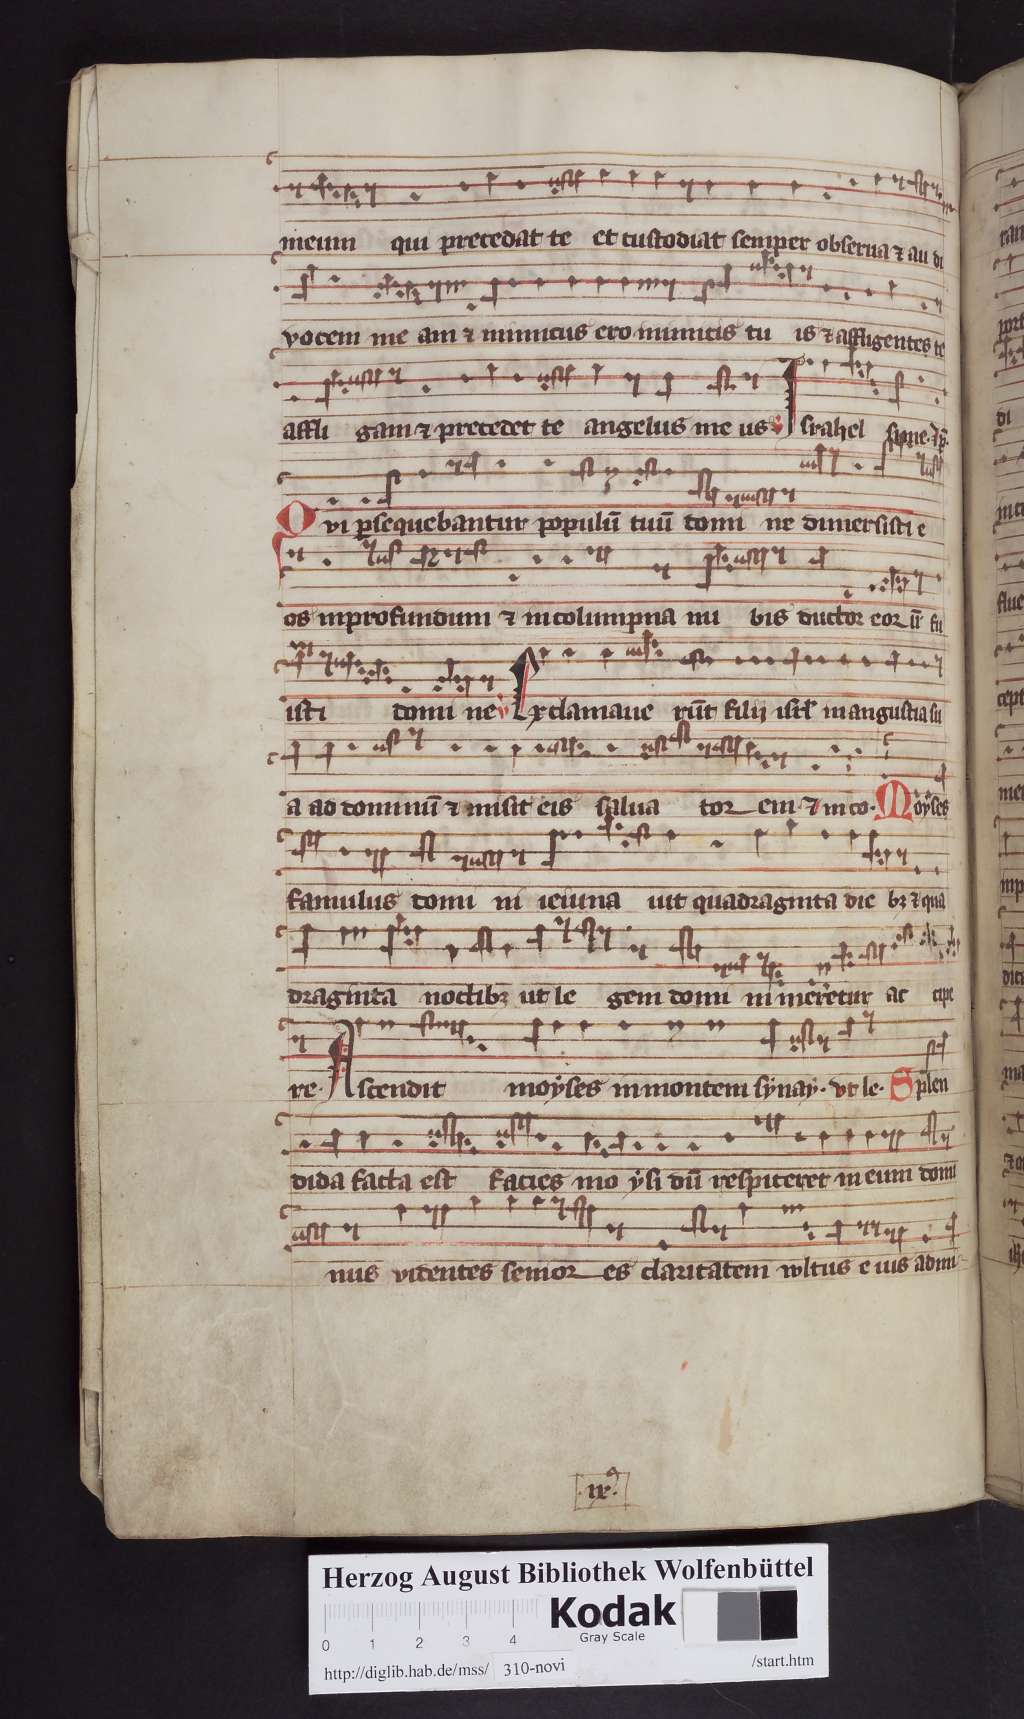 meum qui precedat te et custodiat semper obserua ⁊ au di
vocem me am ⁊ inimicus ero inimicis tu is ⁊ affligentes te
affli gam ⁊ precedet te angelus me us v Israhel
Qvi psequebantur populū tuū domi ne dimersisti e
os inprofundum ⁊ incolumpna nu bis ductor eoꝝ
isti domi ne v Exclamaue rūt filij isrl̄ in angustia su
a ad dominū ⁊ misit eis salua tor em ⁊ in co. Moẏses
famulus domi ni ieiuna uit quadraginta die bꝫ ⁊ qua
draginta noctibꝫ ut le gem domi ni meretur ac cipe
re. Ascendit moẏses inmontem sẏnaẏ. vt le. Splen
dida facta est facies mo ẏsi dū respiceret in eum domi
nus videntes senior es claritatem wltus e ius admi
ix9
Herzog August Bibliothek Wolfenbüttel
0 1 2 3 4
Kodak
Gray Scale
http://diglib.hab.de/mss/ 310-novi /start.htm